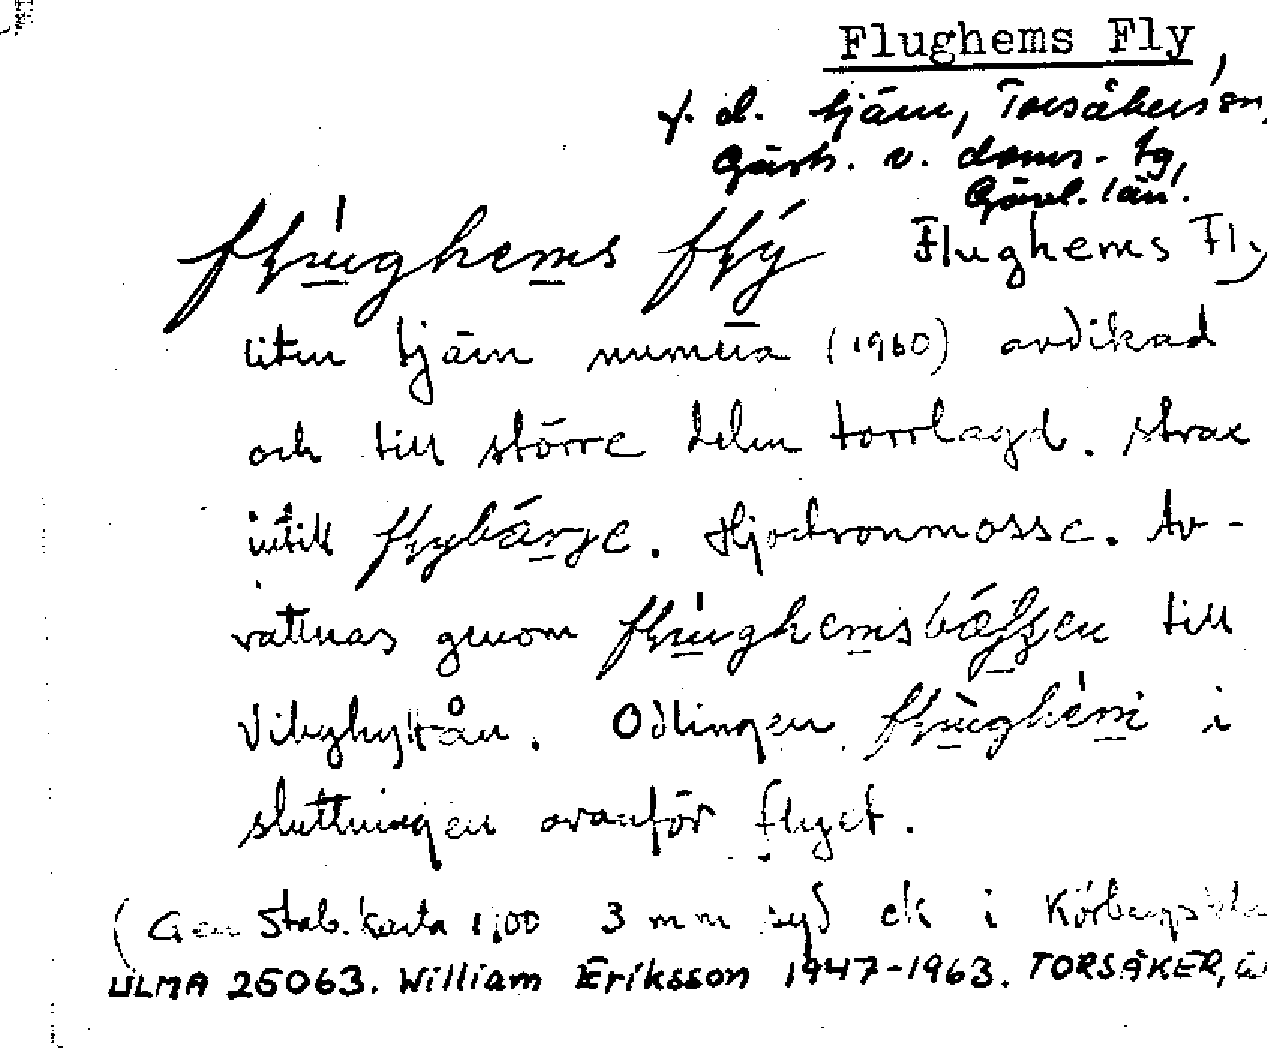 Flughems Fly,
f. d. tjärn, Torsåkers sn,
Gästr. v. doms. tg,
Gävl. län.
flүùghems flý Flughems Fly
liten tjärn numera (1960) avdikad
och till större delen torrlagd. strax
intill flybárge. Hjortronmosse. Av-
vattnas genom flúghemsbækken till
Vibyhyttån. Odlingen flùghèm i
sluttningen ovanför flyet.
(Gen Stab. karta 1:100 3 mm syd ek i
ULMA 25063. William Eriksson 1947-1963. TORSÅKER, G